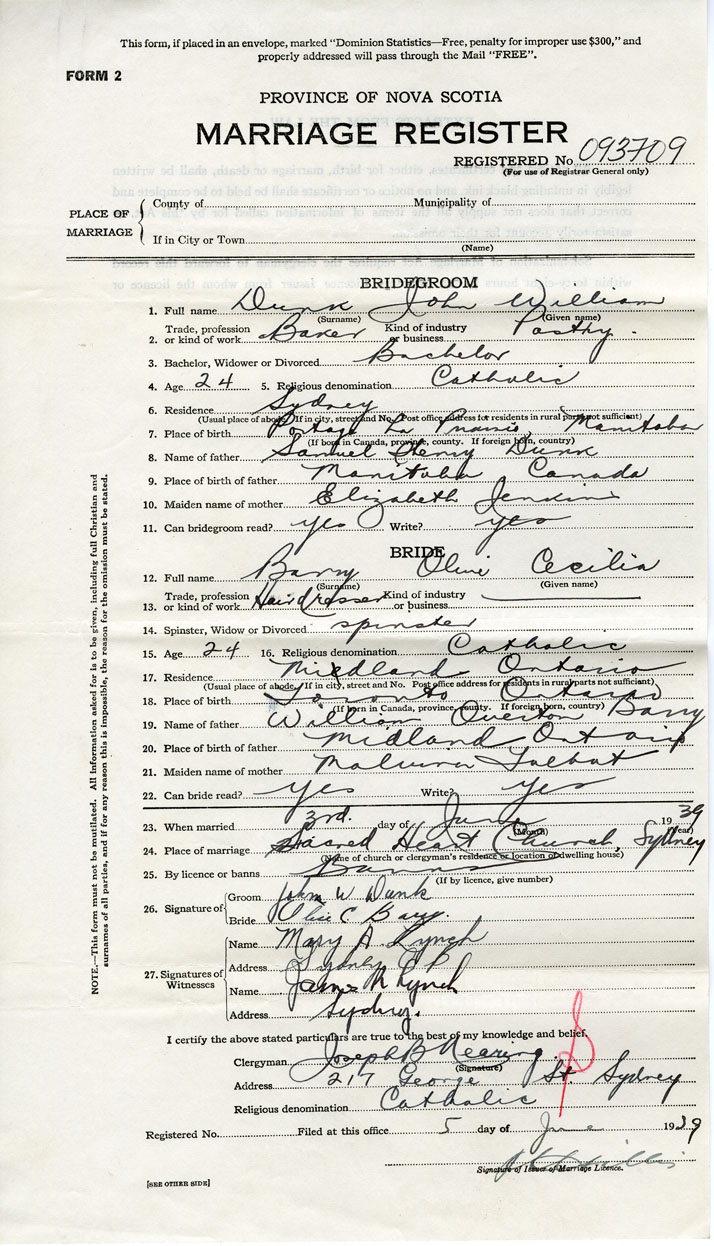 This form, if placed in an envelope, marked "Dominion Statistics—Free, penalty for improper use $300," and
properly addressed will pass through the Mail "FREE".
FORM 2
PROVINCE OF NOVA SCOTIA
MARRIAGE REGISTER
REGISTERED No. 093709
(For use of Registrar General only)
PLACE OF MARRIAGE
County of Municipality of
If in City or Town
(Name)
BRIDEGROOM
1. Full name Dunk John William
(Surname) (Given name)
2. Trade, profession or kind of work Baker Kind of industry or business Pastry.
3. Bachelor, Widower or Divorced Bachelor
4. Age 24 5. Religious denomination Catholic
6. Residence Sydney
(Usual place of abode. If in city, street and No. Post office address for residents in rural parts not sufficient)
7. Place of birth Portage La Prairie, Manitoba
(If born in Canada, province, county. If foreign born, country)
8. Name of father Samuel Henry Dunk
9. Place of birth of father Manitoba Canada
10. Maiden name of mother Elizabeth Jenkins
11. Can bridegroom read? yes Write? yes
BRIDE
12. Full name Barry Olive Cecilia
(Surname) (Given name)
13. Trade, profession or kind of work Hairdresser Kind of industry or business
14. Spinster, Widow or Divorced spinster
15. Age 24 16. Religious denomination Catholic
17. Residence Midland Ontario
(Usual place of abode. If in city, street and No. Post office address for residents in rural parts not sufficient)
18. Place of birth Toronto Ontario
(If born in Canada, province, county. If foreign born, country)
19. Name of father William Overton Barry
20. Place of birth of father Midland Ontario
21. Maiden name of mother Malvina Talbot
22. Can bride read? yes Write? yes
23. When married 3rd. day of June 1939
(Month) (Year)
24. Place of marriage Sacred Heart Church, Sydney
(Name of church or clergyman's residence or location of dwelling house)
25. By licence or banns Banns
(If by licence, give number)
26. Signature of
Groom John W Dunk
Bride Olive C Barry.
27. Signatures of Witnesses
Name Mary A. Lynch
Address Sydney C B
Name James Lynch
Address Sydney.
I certify the above stated particulars are true to the best of my knowledge and belief.
Clergyman Joseph B Nearing
(Signature)
Address 217 George St. Sydney
Religious denomination Catholic
Registered No. Filed at this office 5 day of June 1939
Signature of Issuer of Marriage Licence.
[SEE OTHER SIDE]
NOTE.—This form must not be mutilated. All information asked for is to be given, including full Christian and
surnames of all parties, and if for any reason this is impossible, the reason for the omission must be stated.